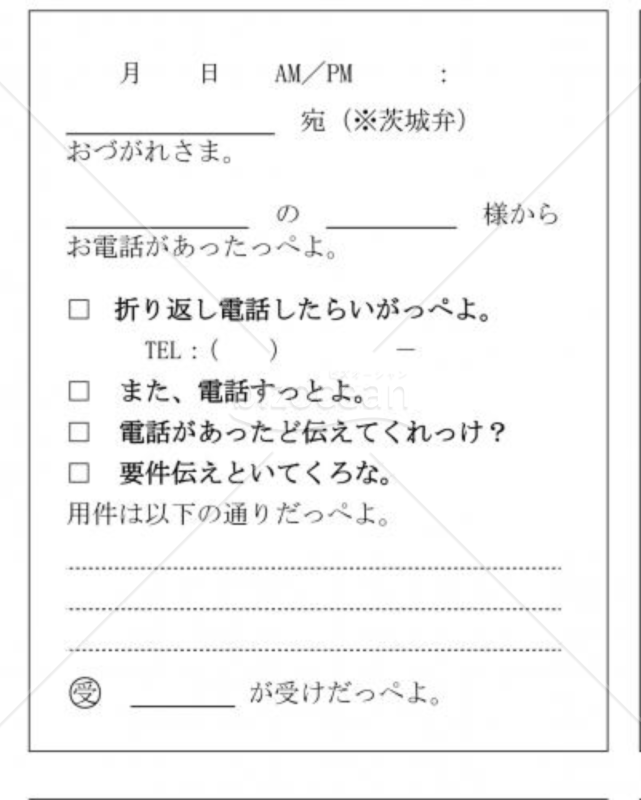 月 日 AM／PM :
宛（※茨城弁）
おづがれさま。
の 様から
お電話があったっぺよ。
□ 折り返し電話したらいがっぺよ。
TEL：( ) －
□ また、電話すっとよ。
□ 電話があったど伝えてくれっけ？
□ 要件伝えといてくろな。
用件は以下の通りだっぺよ。
㊤受 が受けだっぺよ。
bizocean